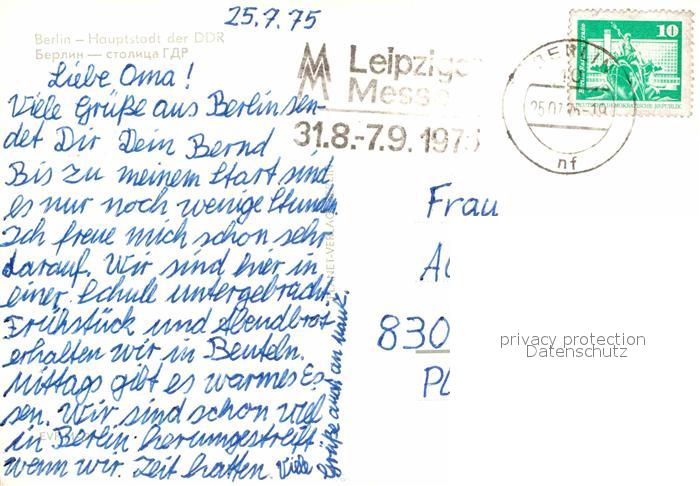 25.7.75
Berlin – Hauptstadt der DDR
Берлин — столица ГДР
Liebe Oma!
Viele Grüße aus Berlin sen-
det Dir Dein Bernd
Bis zu meinem Start sind
es nur noch wenige Stunden.
Ich freue mich schon sehr
darauf. Wir sind hier in
einer Schule untergebracht.
Frühstück und Abendbrot
erhalten wir in Beuteln.
Mittags gibt es warmes Es-
sen. Wir sind schon viel
in Berlin herumgestreift
wenn wir Zeit hatten. Viele
Grüße auch an
Leipziger
Messe
31.8.-7.9. 1975
BERLIN
25.07.75-19
nf
10
DEUTSCHE DEMOKRATISCHE REPUBLIK
Frau
830
Pl
privacy protection
Datenschutz